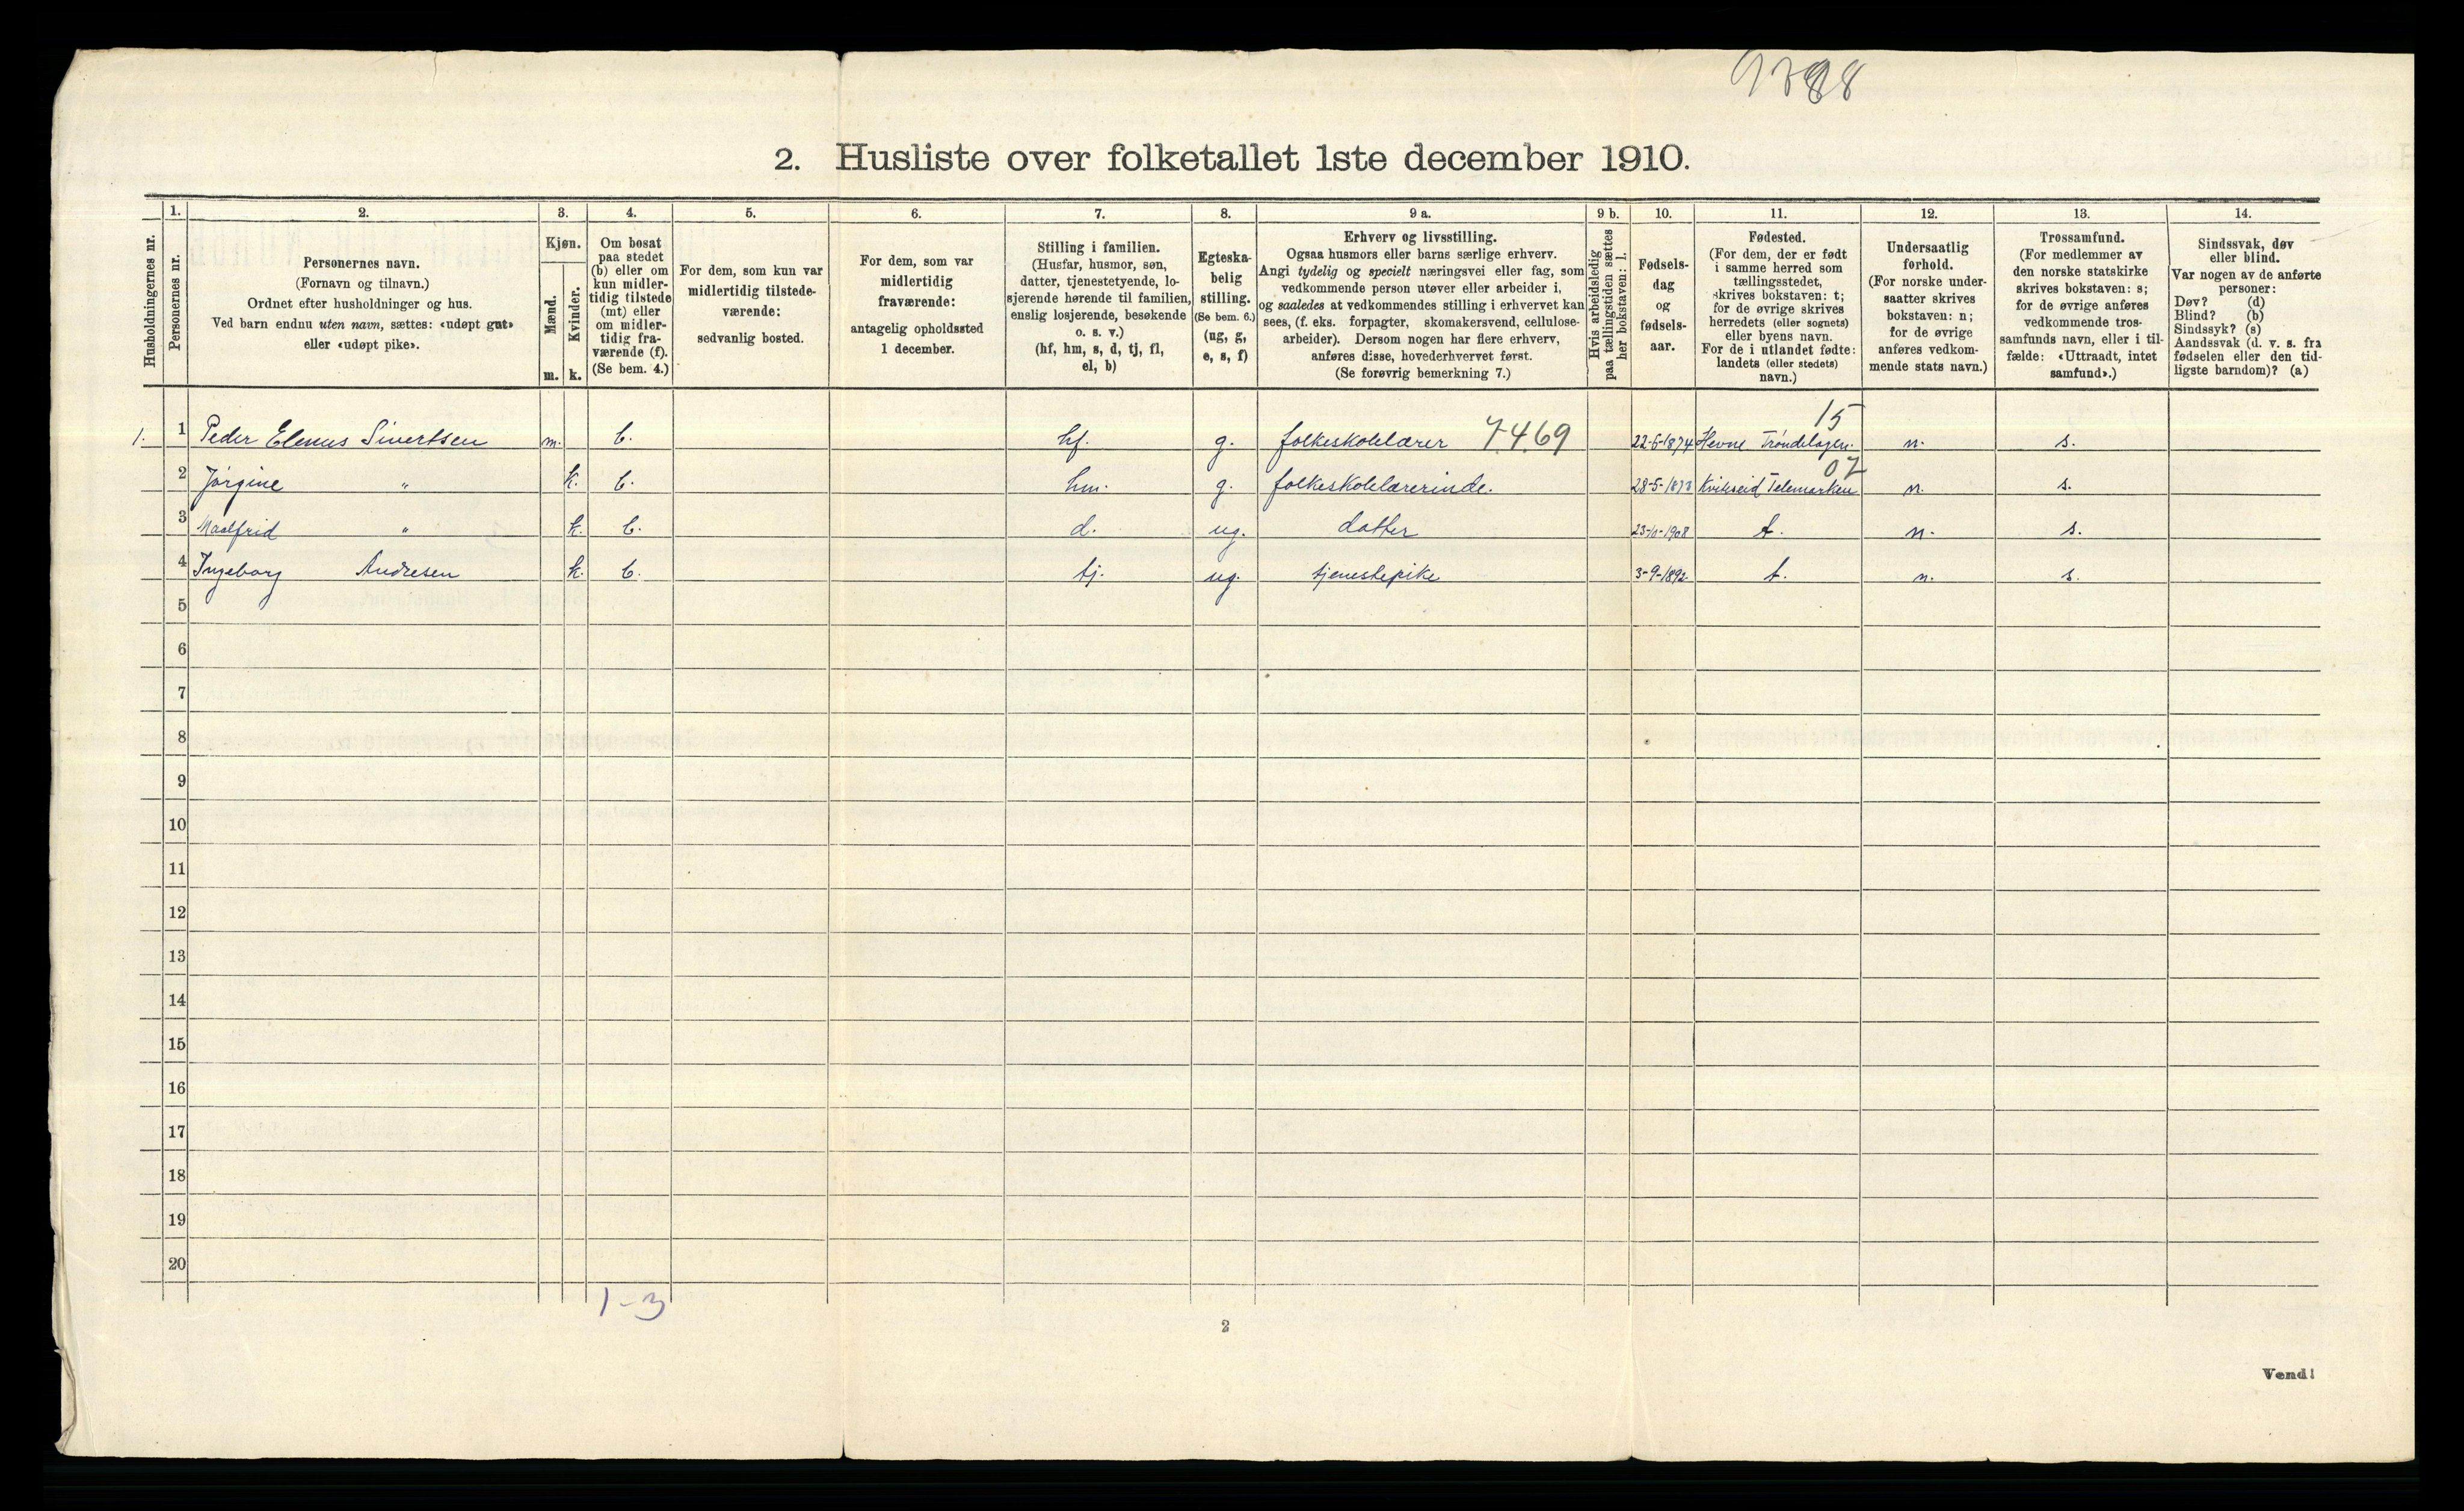 2. Husliste over folketallet 1ste december 1910.
Husholdningernes nr.
1.
Personernes nr.
2.
Personernes navn.
(Fornavn og tilnavn.)
Ordnet efter husholdninger og hus.
Ved barn endnu uten navn, sættes: «udøpt gut»
eller «udøpt pike».
3.
Kjøn.
Mænd.
m.
Kvinder.
k.
4.
Om bosat
paa stedet
(b) eller om
kun midler-
tidig tilstede
(mt) eller
om midler-
tidig fra-
værende (f).
(Se bem. 4.)
5.
For dem, som kun var
midlertidig tilstede-
værende:
sedvanlig bosted.
6.
For dem, som var
midlertidig
fraværende:
antagelig opholdssted
1 december.
7.
Stilling i familien.
(Husfar, husmor, søn,
datter, tjenestetyende, lo-
sjerende hørende til familien,
enslig losjerende, besøkende
o. s. v.)
(hf, hm, s, d, tj, fl,
el, b)
8.
Egteska-
belig
stilling.
(Se bem. 6.)
(ug, g,
e, s, f)
9 a.
Erhverv og livsstilling.
Ogsaa husmors eller barns særlige erhverv.
Angi tydelig og specielt næringsvei eller fag, som
vedkommende person utøver eller arbeider i,
og saaledes at vedkommendes stilling i erhvervet kan
sees, (f. eks. forpagter, skomakersvend, cellulose-
arbeider). Dersom nogen har flere erhverv,
anføres disse, hovederhvervet først.
(Se forøvrig bemerkning 7.)
9 b.
Hvis arbeidsledig
paa tællingstiden sættes
her bokstaven: l.
10.
Fødsels-
dag
og
fødsels-
aar.
11.
Fødested.
(For dem, der er født
i samme herred som
tællingsstedet,
skrives bokstaven: t;
for de øvrige skrives
herredets (eller sognets)
eller byens navn.
For de i utlandet fødte:
landets (eller stedets)
navn.)
12.
Undersaatlig
forhold.
(For norske under-
saatter skrives
bokstaven: n;
for de øvrige
anføres vedkom-
mende stats navn.)
13.
Trossamfund.
(For medlemmer av
den norske statskirke
skrives bokstaven: s;
for de øvrige anføres
vedkommende tros-
samfunds navn, eller i til-
fælde: «Uttraadt, intet
samfund».)
14.
Sindssvak, døv
eller blind.
Var nogen av de anførte
personer:
Døv? (d)
Blind? (b)
Sindssyk? (s)
Aandssvak (d. v. s. fra
fødselen eller den tid-
ligste barndom)? (a)
15
1. 1 Peder Elenus Sivertsen m. b. hf. g. folkeskolelærer 7469 22-5-1874 Hevne Trøndelagen. n. s.
07
2 Jørgine " k. b. hm. g. folkeskolelærerinde. Kvitseid Telemarken n. s.
3 Maalfrid " k. b. d. ug. datter 23-10-1908 t. n. s.
4 Ingeborg Andresen k. b. tj. ug. tjenestepike 3-9-1892 t. n. s.
5
6
7
8
9
10
11
12
13
14
15
16
17
18
19
20
1-3
2
Vend!